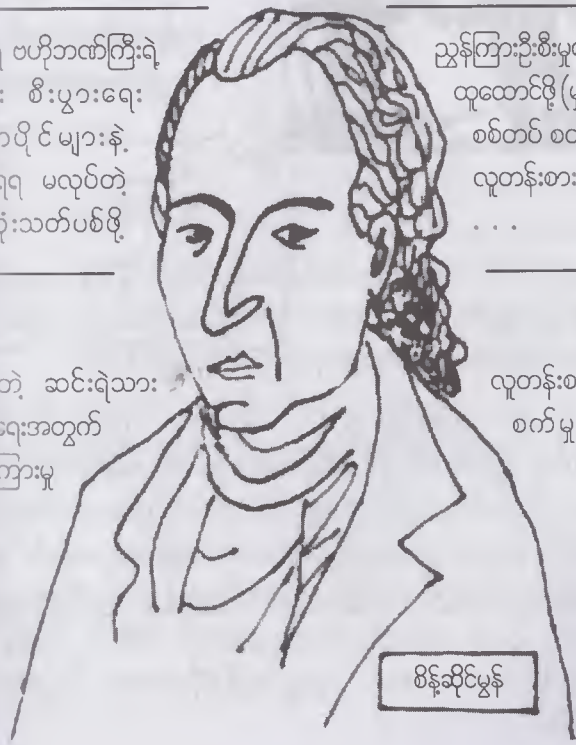 ဗဟိုဘဏ်ကြီးရဲ့
စီးပွားရေး
ပိုင်များနဲ့
မလုပ်တဲ့
သုံးသတ်ပစ်ဖို့
တဲ့ ဆင်းရဲသား
ရေးအတွက်
ကြားမှု
ညွှန်ကြားဦးစီးမှု
ထူထောင်ဖို့
စစ်တပ်
လူတန်းစား
. . .
လူတန်းစ
စက်မှု
စိန့်ဆိုင်မွန်